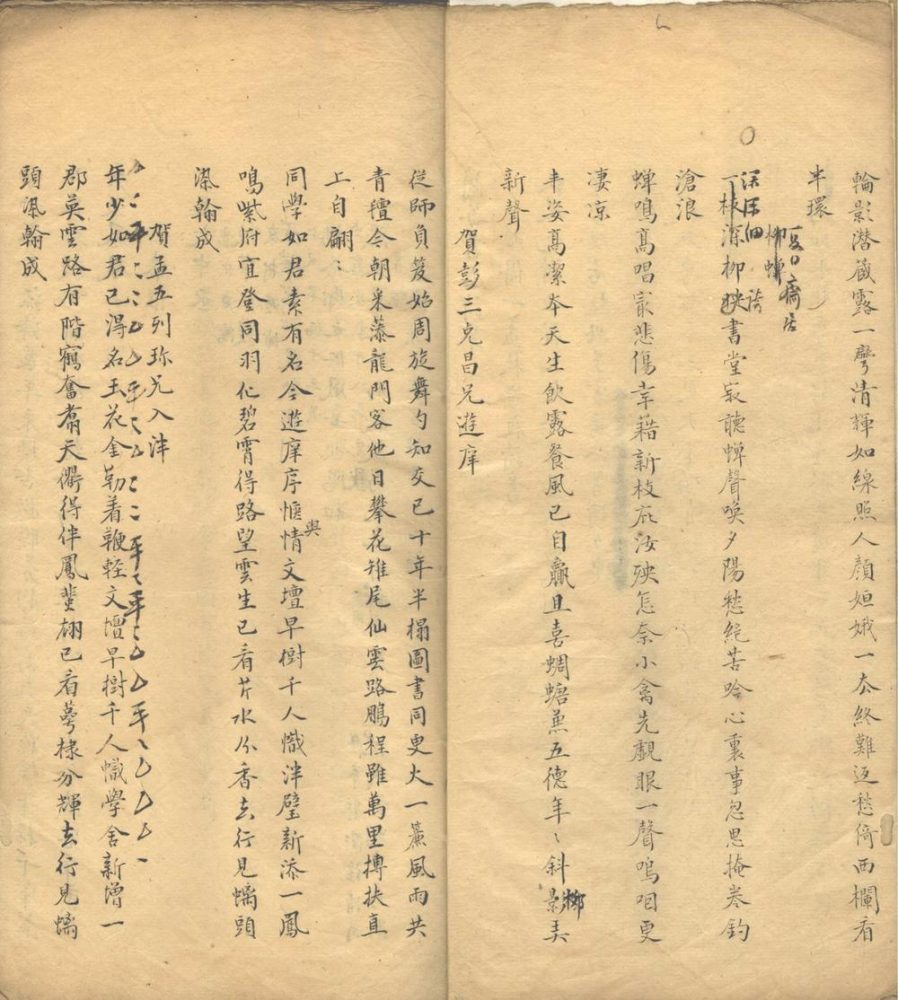 輪影潛蔵露一彎清輝如線照人顏姮娥一去終難返愁倚西欄看
半環
夏日齋居
柳蝉
一枝深柳映書堂寂聽蝉聲喚夕陽愁絕苦吟心裏事忽思掩卷釣
滄浪
蝉鳴髙唱寂悲傷幸藉新枝庇汝殃怎奈小禽先覷眼一聲嗚咽更
凄凉
丰姿髙潔本天生飲露餐風已自羸且喜蜩螗兼五德年〻斜影弄
柳
新聲
賀彭三克昌兄遊庠
從師負笈始周旋舞勺知交已十年半榻圖書同更火一簾風雨共
青氊今朝采藻龍門客他日攀花雉尾仙雲路鵬程雖萬里摶扶直
上自翩〻
同學如君素有名今遊庠序愜情文壇早樹千人幟泮壁新添一鳳
與
鳴紫府宜登同羽化碧霄得路望雲生已看芹水分香去行見螭頭
染翰成
賀孟五列珍兄入泮
年少如君已得名玉花金勒着鞭軽文壇早樹千人幟學舍新增一
郡英雲路有階鶱奮翥天衢得伴鳳蜚翀已看萼棣分輝去行見螭
頭染翰成